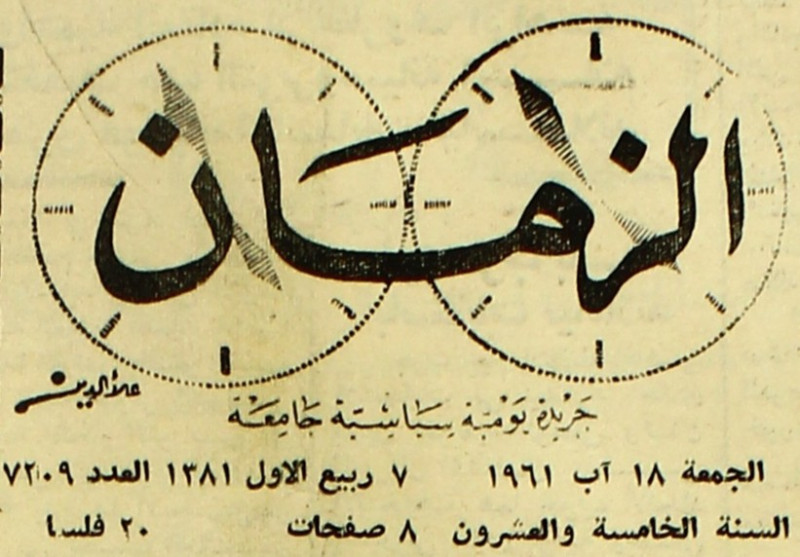 الزمان
علاء الدين
جريدة يومية سياسية جامعة
الجمعة ١٨ آب ١٩٦١ ٧ ربيع الاول ١٣٨١ العدد ٧٢٠٩
السنة الخامسة والعشرون ٨ صفحات ٢٠ فلسا